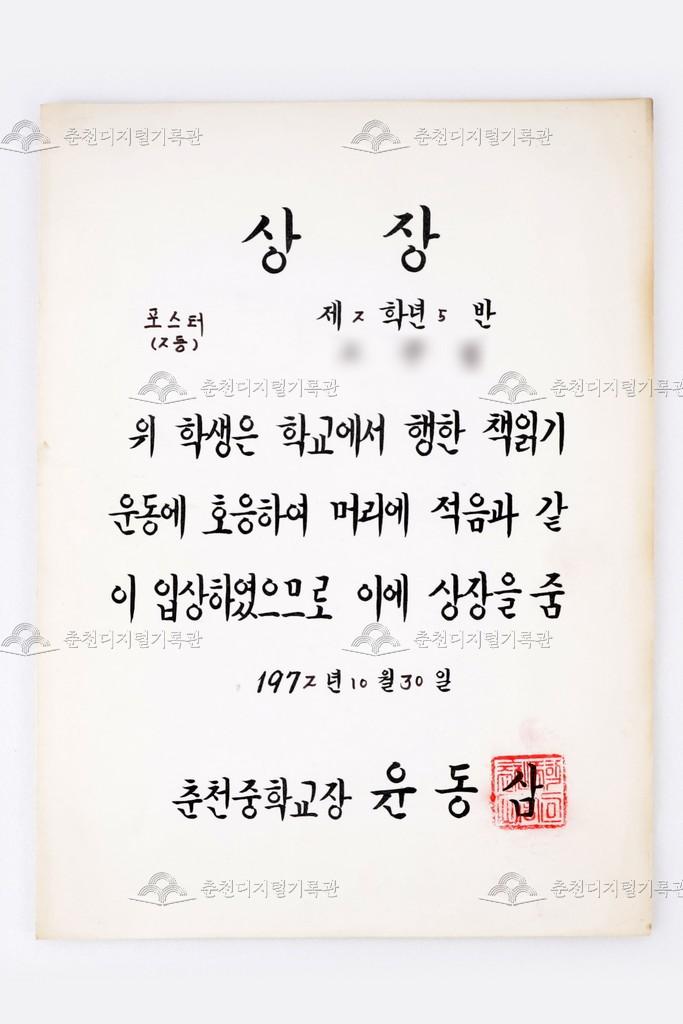 춘천디지털기록관 춘천디지털기록관
상 장
포스터 제 2 학년 5 반
(2등)
춘천디지털기록관 춘천디지털기록관
위 학생은 학교에서 행한 책읽기
운동에 호응하여 머리에 적음과 같
이 입상하였으므로 이에 상장을 줌
춘천디지털기록관 춘천디지털기록관
1972년 10월 30일
춘천중학교장 윤동삼
춘천디지털기록관 춘천디지털기록관